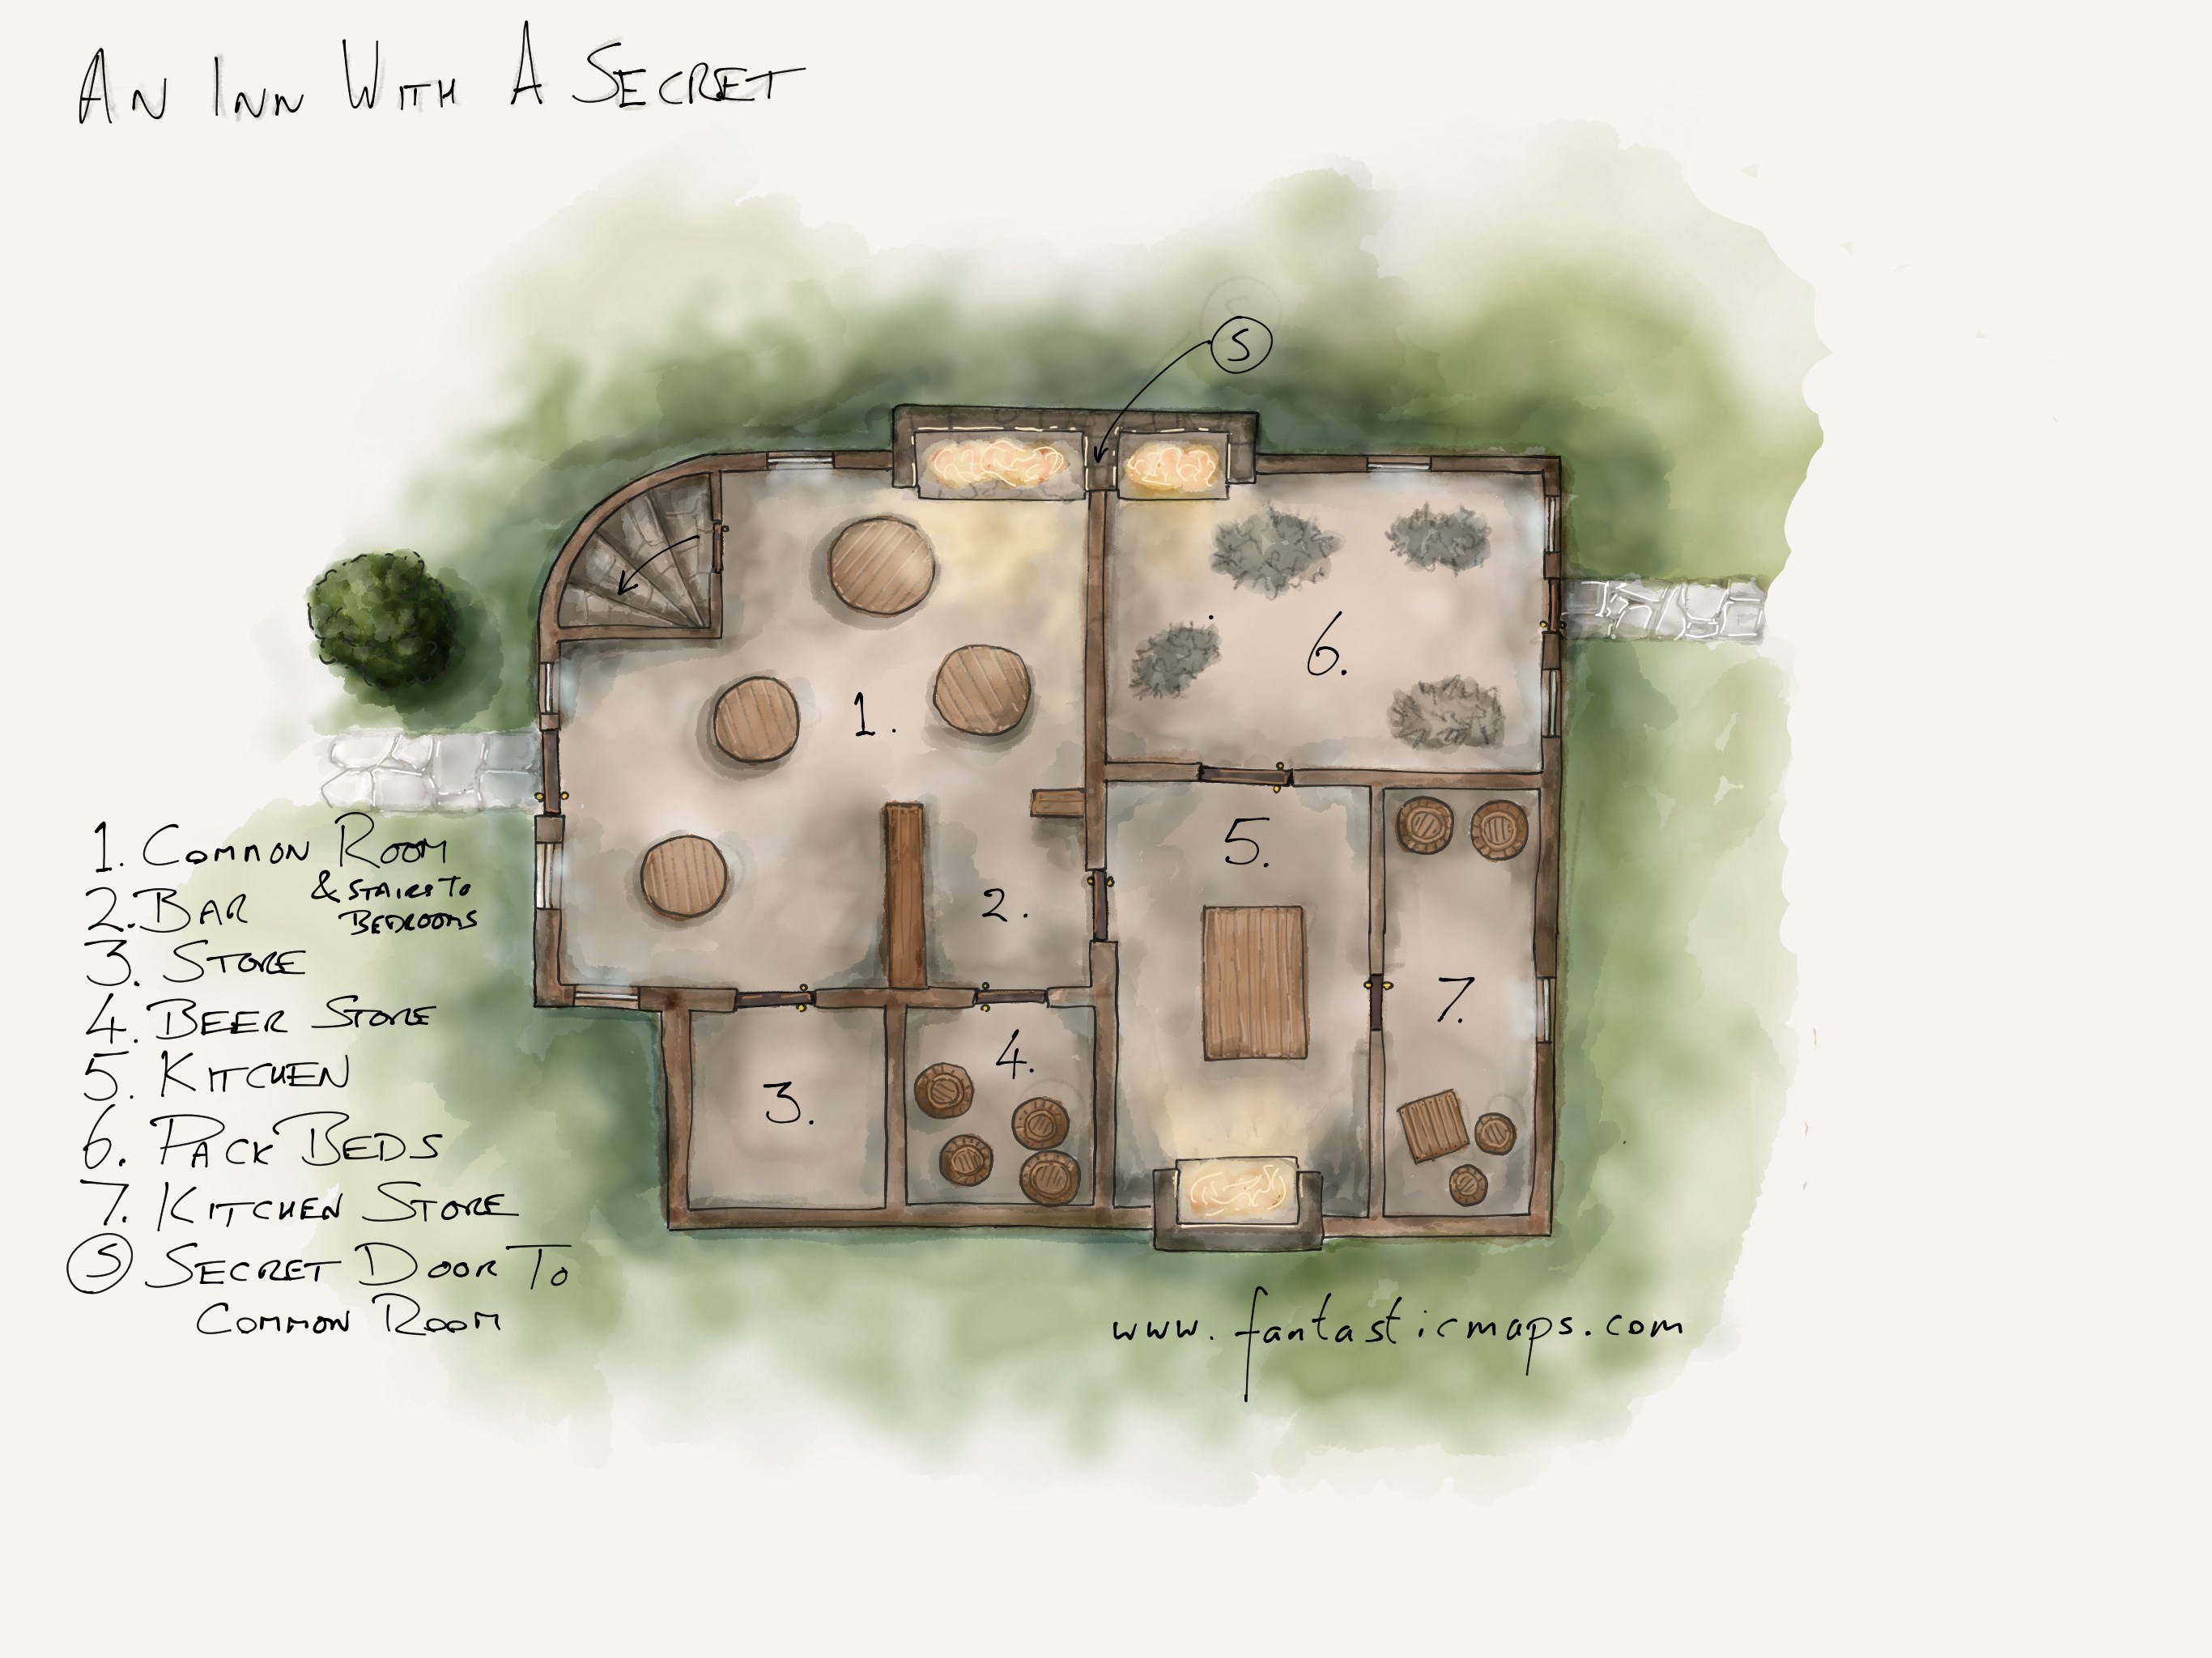 AN INN WITH A SECRET
S
1.
6.
5.
2.
7.
4.
3.
1. COMMON ROOM
& STAIRS TO
BEDROOMS
2. BAR
3. STORE
4. BEER STORE
5. KITCHEN
6. PACK BEDS
7. KITCHEN STORE
S SECRET DOOR TO
COMMON ROOM
www.fantasticmaps.com